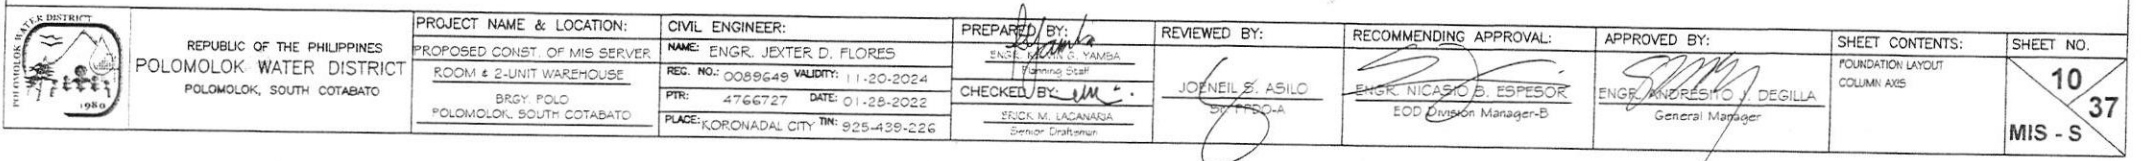 POLOMOLOK WATER DISTRICT
1980
REPUBLIC OF THE PHILIPPINES
POLOMOLOK WATER DISTRICT
POLOMOLOK, SOUTH COTABATO
PROJECT NAME & LOCATION:
PROPOSED CONST. OF MIS SERVER
ROOM & 2-UNIT WAREHOUSE
BRGY. POLO
POLOMOLOK, SOUTH COTABATO
CIVIL ENGINEER:
NAME: ENGR. JEXTER D. FLORES
REG. NO.: 0089649 VALIDITY: 11-20-2024
PTR: 4766727 DATE: 01-28-2022
PLACE: KORONADAL CITY TIN: 925-439-226
PREPARED BY:
ENGR. G. YAMBA
Planning Staff
CHECKED BY:
ERICK M. LACANARIA
Senior Draftsman
REVIEWED BY:
JOENEIL S. ASILO
RECOMMENDING APPROVAL:
ENGR. NICASIO B. ESPESOR
EOD Division Manager-B
APPROVED BY:
ENGR. ANDRESITO J. DEGILLA
General Manager
SHEET CONTENTS:
FOUNDATION LAYOUT
COLUMN AXIS
SHEET NO.
10
37
MIS - S